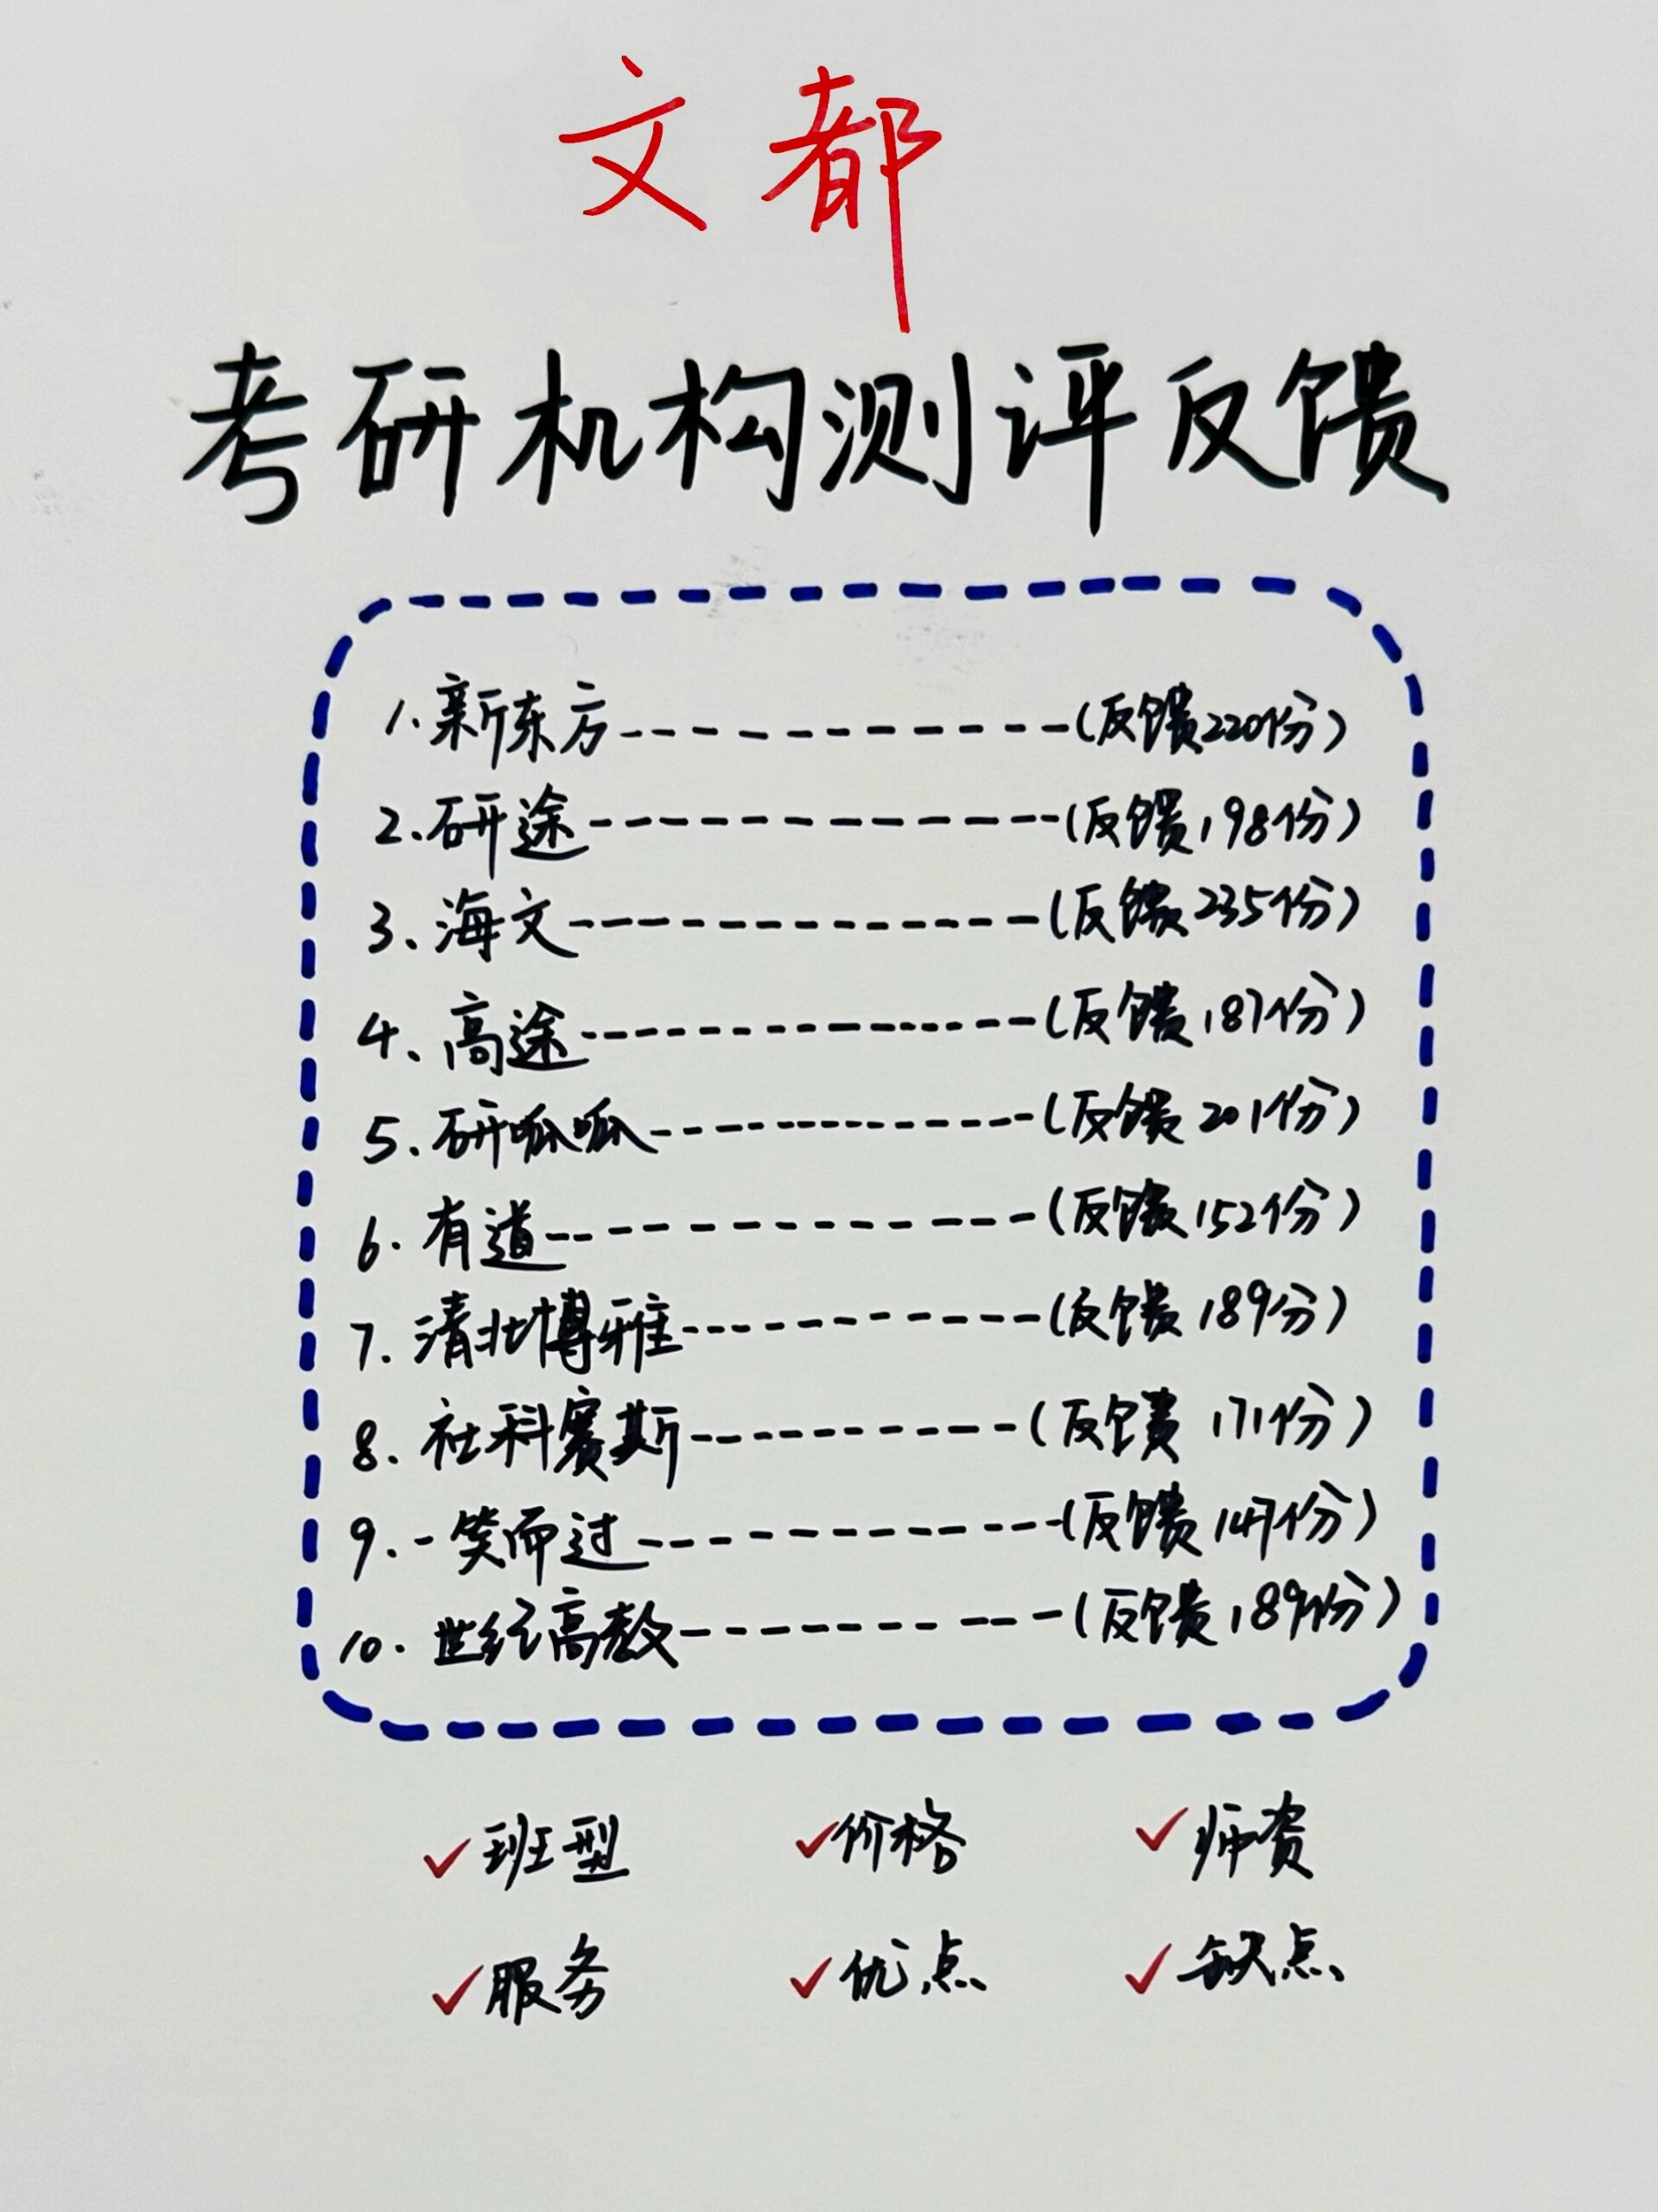 文都
考研机构测评反馈
1.新东方------------(反馈220份)
2.研途------------(反馈198份)
3、海文------------(反馈235份)
4、高途------------(反馈187份)
5.研呱呱------------(反馈201份)
6.有道------------(反馈152份)
7.清北博雅------------(反馈189分)
8.社科赛斯------------(反馈171份)
9.一笑而过------------(反馈147份)
10.世纪高教------------(反馈189份)
✓班型 ✓价格 ✓师资
✓服务 ✓优点 ✓缺点